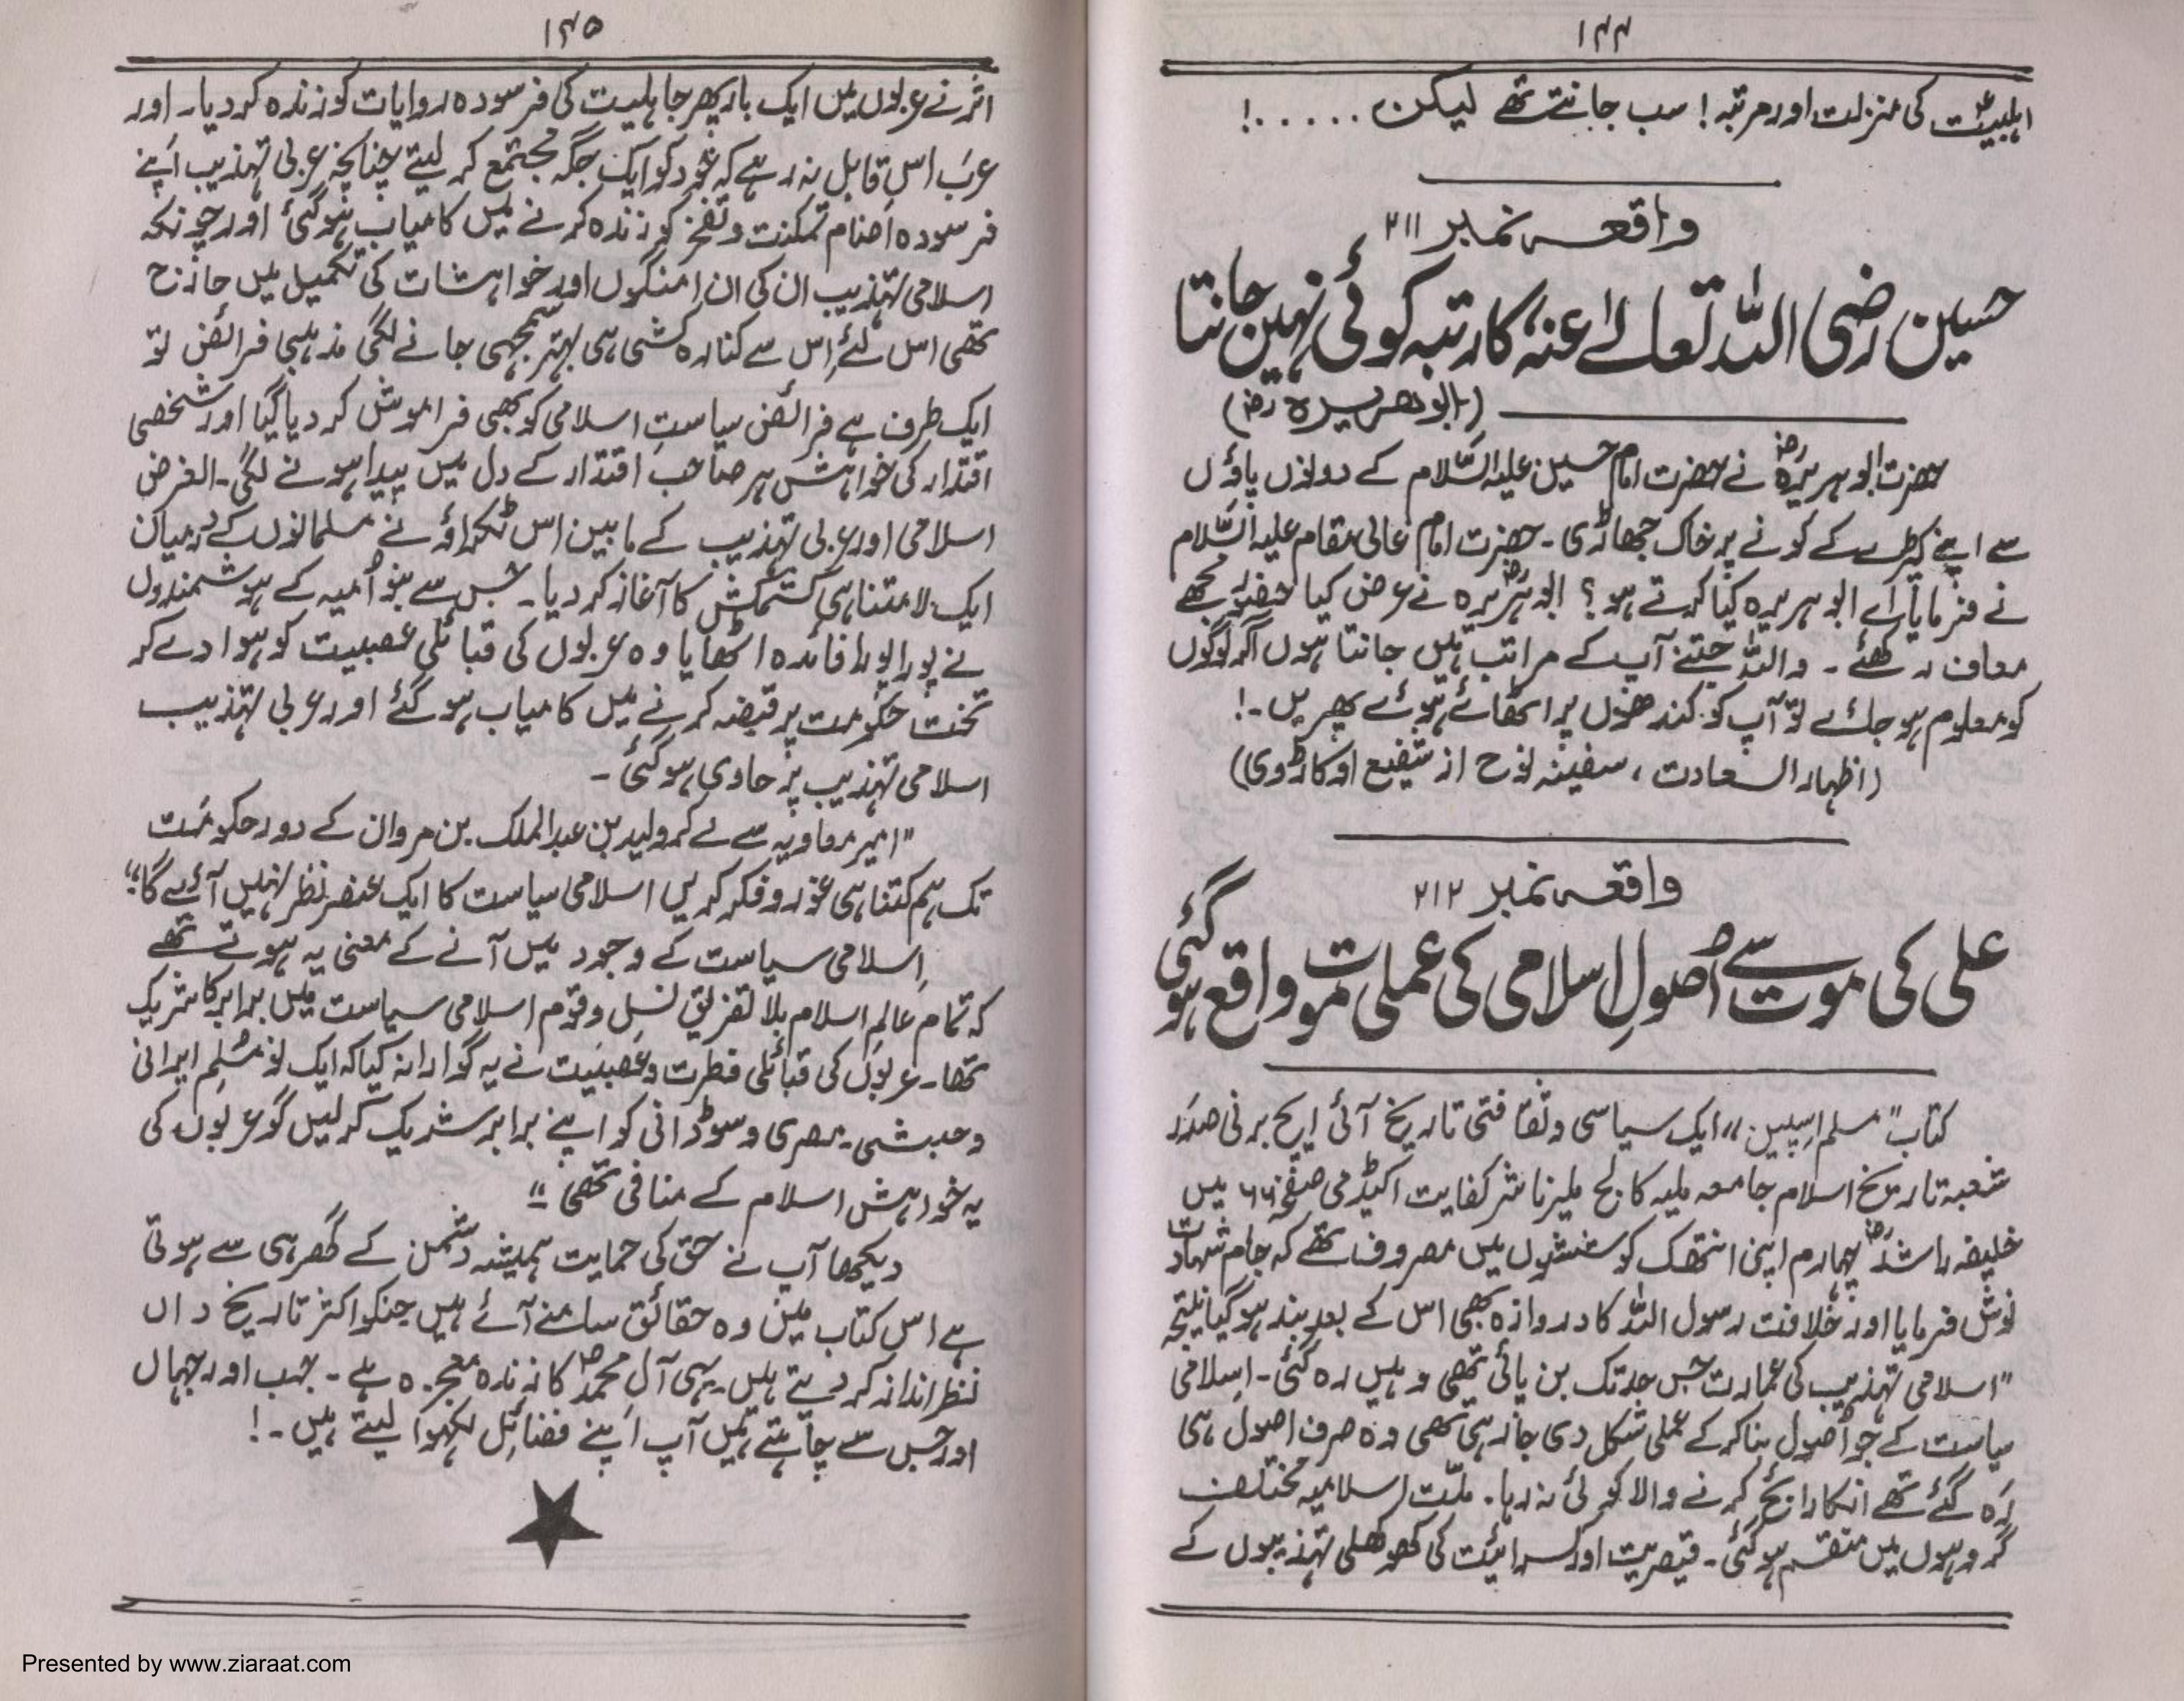 ۱۴۴
اہلبیتؑ کی منزلت اور مرتبہ! سب جانتے تھے لیکن.....!
واقعہ نمبر ۲۱۱
حسین رضی اللہ تعالےٰ عنہٗ کا رتبہ کوئی نہیں جانتا
(ابوھریرہ رضؓ)
حضرت ابو ہریرہؓ نے حضرت امام حسین علیہ السّلام کے دونوں پاؤں
سے اپنے کپڑے کے کونے پر خاک جھاڑی۔ حضرت امام عالی مقام علیہ السّلام
نے فرمایا اے ابو ہریرہ کیا کرتے ہو؟ ابو ہریرہؓ نے عرض کیا حضور مجھے
معاف رکھئے۔ واللہ جتنے آپ کے مراتب میں جانتا ہوں اگر لوگوں
کو معلوم ہو جائے تو آپ کو کندھوں پر اٹھائے ہوئے پھریں۔!
(اظہار السعادت، سفینہ نوح از شفیع اوکاڑوی)
واقعہ نمبر ۲۱۲
علی کی موت سے اُصولِ اسلامی کی عملی موت واقع ہو گئی
کتاب "مسلم اسپین" ایک سیاسی و ثقافتی تاریخ آئی ایچ برنی صدر
شعبہ تاریخ اسلام جامعہ ملیہ کالج ملیر ناشر کفایت اکیڈمی صفحہ ۶۶ میں
خلیفہ راشدؓ چہارم اپنی انتھک کوششوں میں مصروف تھے کہ جام شہادت
نوش فرمایا اور خلافت رسول اللہ کا دروازہ بھی اس کے بعد بند ہو گیا نتیجہ
"اسلامی تہذیب کی عمارت جس حد تک بن پائی تھی وہیں رہ گئی۔ اسلامی
سیاست کے جو اُصول بنا کر کے عملی شکل دی جا رہی تھی وہ صرف اصول ہی
رہ گئے تھے انکا رائج کرنے والا کوئی نہ رہا۔ ملّت اسلامیہ مختلف
گروہوں میں منقسم ہو گئی۔ قیصریت اور کسرائیت کی کھوکھلی تہذیبوں کے
۱۴۵
اثر نے عربوں میں ایک بار پھر جاہلیت کی فرسودہ روایات کو زندہ کر دیا۔ اور
عرب اس قابل نہ رہے کہ خود کو ایک جگہ مجتمع کر لیتے چنانچہ عربی تہذیب اپنے
فرسودہ اصنام تمکنت و تفخر کو زندہ کرنے میں کامیاب ہو گئی اور چونکہ
اسلامی تہذیب ان کی ان امنگوں اور خواہشات کی تکمیل میں حارج
تھی اس لئے اس سے کنارہ کشی ہی بہتر سمجھی جانے لگی مذہبی فرائض تو
ایک طرف ہے فرائض سیاست اسلامی کو بھی فراموش کر دیا گیا اور شخصی
اقتدار کی خواہش ہر صاحب اقتدار کے دل میں پیدا ہونے لگی۔ الغرض
اسلامی اور عربی تہذیب کے مابین اس ٹکراؤ نے مسلمانوں کے درمیان
ایک لامتناہی کشمکش کا آغاز کر دیا۔ جس سے بنو اُمیہ کے ہوشمندوں
نے پورا پورا فائدہ اٹھایا وہ عربوں کی قبائلی عصبیت کو ہوا دے کر
تخت حکومت پر قبضہ کرنے میں کامیاب ہو گئے اور عربی تہذیب
اسلامی تہذیب پر حاوی ہو گئی۔
"امیر معاویہ سے لے کر ولید بن عبدالملک بن مروان کے دور حکومت
تک ہم کتنا ہی غور و فکر کریں اسلامی سیاست کا ایک عنصر نظر نہیں آئے گا"
اسلامی سیاست کے وجود میں آنے کے معنی یہ ہوتے تھے
کہ تمام عالم اسلام بلا تفریق نسل و قوم اسلامی سیاست میں برابر کا شریک
تھا۔ عربوں کی قبائلی فطرت و عصبیت نے یہ گوارا نہ کیا کہ ایک نو مسلم ایرانی
و حبشی۔ مصری و سوڈانی کو اپنے برابر شریک کر لیں گو عربوں کی
یہ خواہش اسلام کے منافی تھی"
دیکھا آپ نے حق کی حمایت ہمیشہ دشمن کے گھر ہی سے ہوتی
ہے اس کتاب میں وہ حقائق سامنے آئے ہیں جنکو اکثر تاریخ داں
نظر انداز کر دیتے ہیں۔ یہی آلِ محمدؐ کا زندہ معجزہ ہے۔ جب اور جہاں
اور جس سے چاہتے ہیں آپ اپنے فضائل لکھوا لیتے ہیں۔!
Presented by www.ziaraat.com